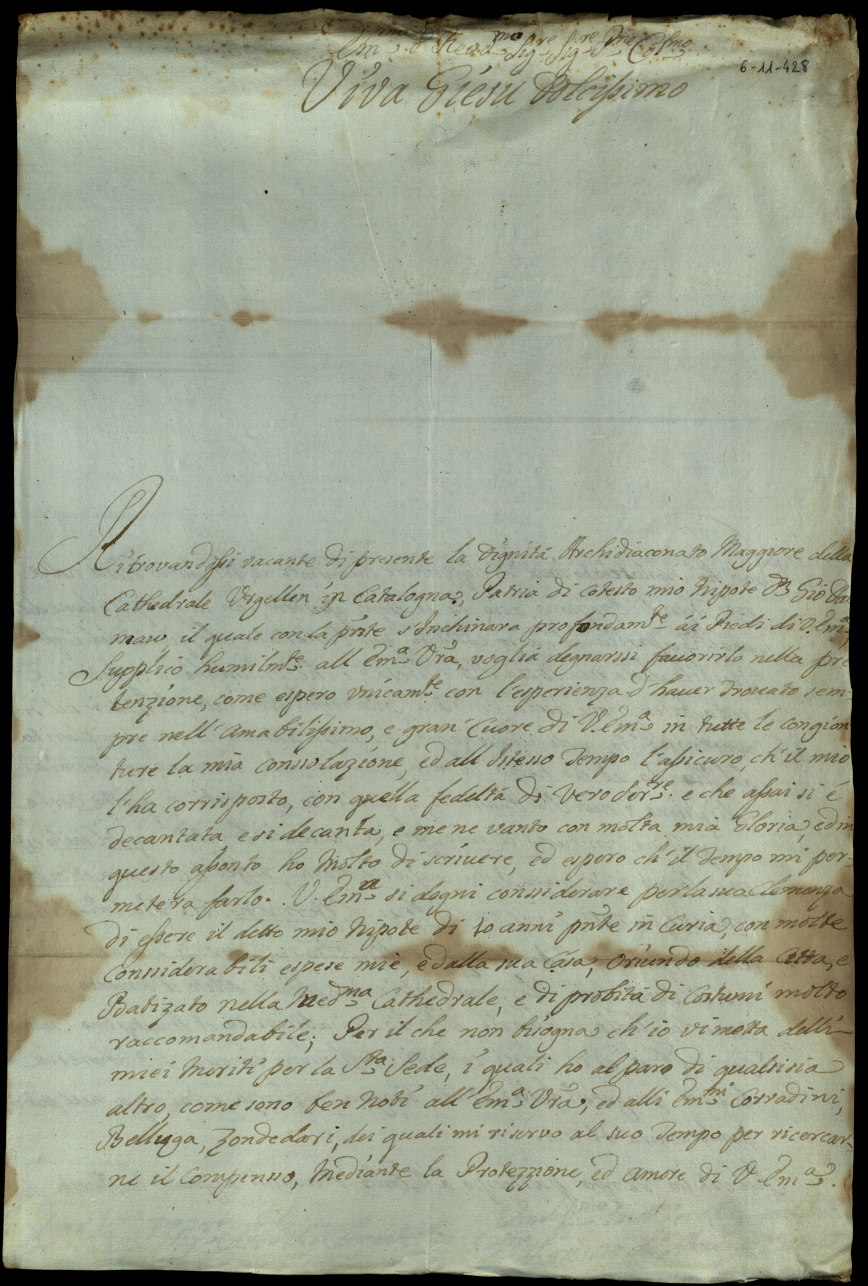 Em.mo e Rev.mo Sig.re Sig.re P.rone Col.mo
6-11-428
Viva Giesù dolcissimo
Ritrovandosi vacante di presente la dignità Archidiaconato Maggiore della
Cathedrale Urgellen in Catalogna, Patria di cotesto mio Nipote D. Gio
il quale con la p.nte s'Inchinara profondam.te ai Piedi di V. Em.a
Supplico humilm.te all'Em.a V.ra, voglia degnarssi favorirlo nella pre
tenzione, come espero unicam.te con l'esperienza d'haver trovato sem-
pre nell'Amabilissimo, e gran Cuore di V. Em.a in tutte le congion
ture la mia conssolazione, ed all'Istesso tempo l'assicuro, ch'il mio
l'ha corrisposto, con quella fedeltà di vero e che assai si è
decantata e si decanta, e me ne vanto con molta mia Gloria, ed in
questo assonto ho Molto di scrivere, ed espero ch'il tempo mi per-
metera farlo. V. Em.za si degni conssiderare per la sua Clemenza
di essere il detto mio Nipote di 10 anni p.nte in Curia, con molte
Conssiderabili espese mie, ed dalla sua Casa, Oriundo della Città, e
Batizato nella Med.ma Cathedrale, e di probità di Costumi molto
raccomandabile; Per il che non bisogna ch'io vi metta delli
miei Meriti per la S.ta Sede, i quali ho al paro di qualsisia
altro, come sono ben Noti all'Em.a V.ra, ed alli Em.mi Corradini,
Belluga, Zondedari, dei quali mi riservo al suo tempo per ricercar-
ne il Compenso, Mediante la Protezzione, ed Amore di V. Em.a